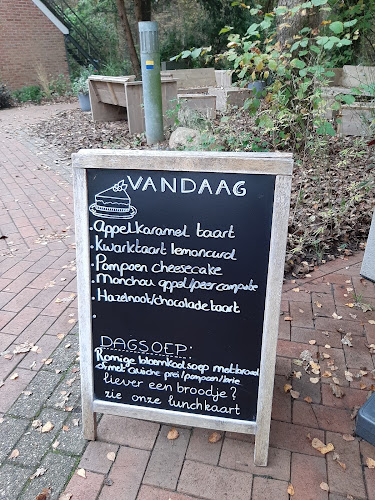 VANDAAG
·Appel karamel taart
·Kwarktaart lemoncurd
·Pompoen cheesecake
·Monchou appel/peer compote
·Hazelnoot/chocolade taart
·
DAGSOEP:
Romige bloemkoolsoep met brood
of met Quiche prei/pompoen/brie
liever een broodje?
zie onze lunchkaart